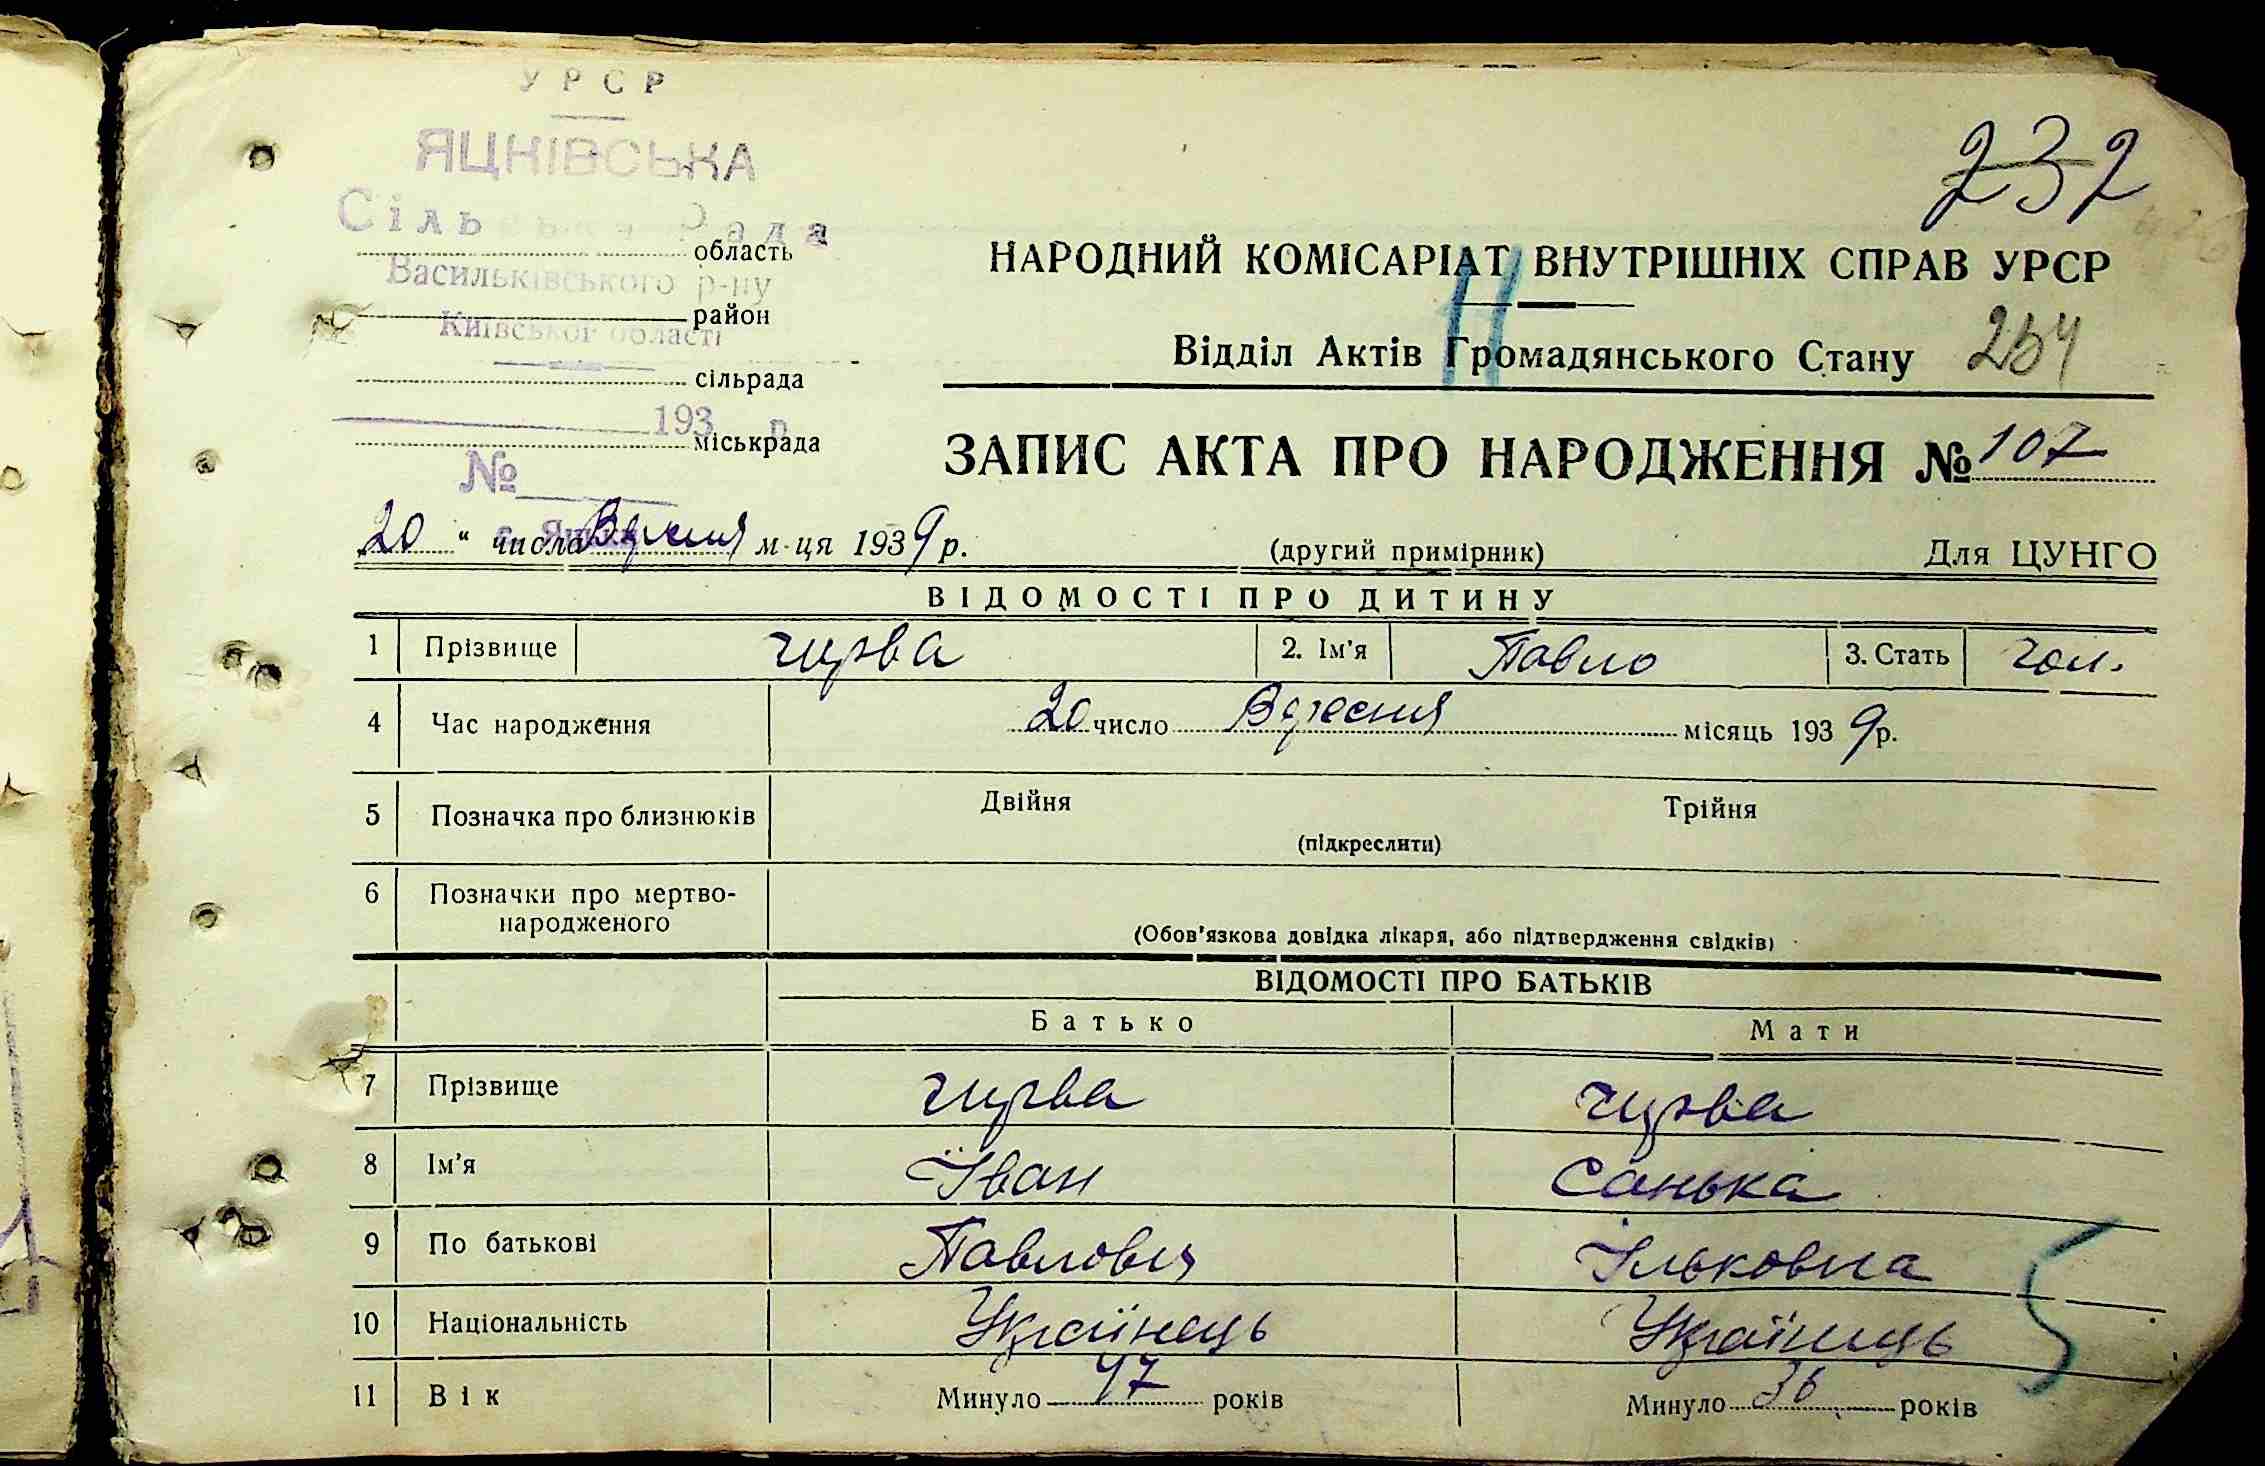 УРСР
ЯЦКІВСЬКА
Сільська Рада
область
Васильківського р-ну
район
Київської області
сільрада
193 р.
міськрада
№
232
НАРОДНИЙ КОМІСАРІАТ ВНУТРІШНІХ СПРАВ УРСР
Відділ Актів Громадянського Стану
254
ЗАПИС АКТА ПРО НАРОДЖЕННЯ № 107
20 " числа Вересня м-ця 1939 р.
(другий примірник)
Для ЦУНГО
ВІДОМОСТІ ПРО ДИТИНУ
1 Прізвище Чирва 2. Ім'я Павло 3. Стать Чол.
4 Час народження 20 число Вересня місяць 1939 р.
5 Позначка про близнюків Двійня Трійня
(підкреслити)
6 Позначки про мертво-
народженого
(Обов'язкова довідка лікаря, або підтвердження свідків)
ВІДОМОСТІ ПРО БАТЬКІВ
Батько Мати
7 Прізвище Чирва Чирва
8 Ім'я Іван Санька
9 По батькові Павлович Ільковна
10 Національність Українець Українць
11 Вік Минуло 47 років Минуло 36 років